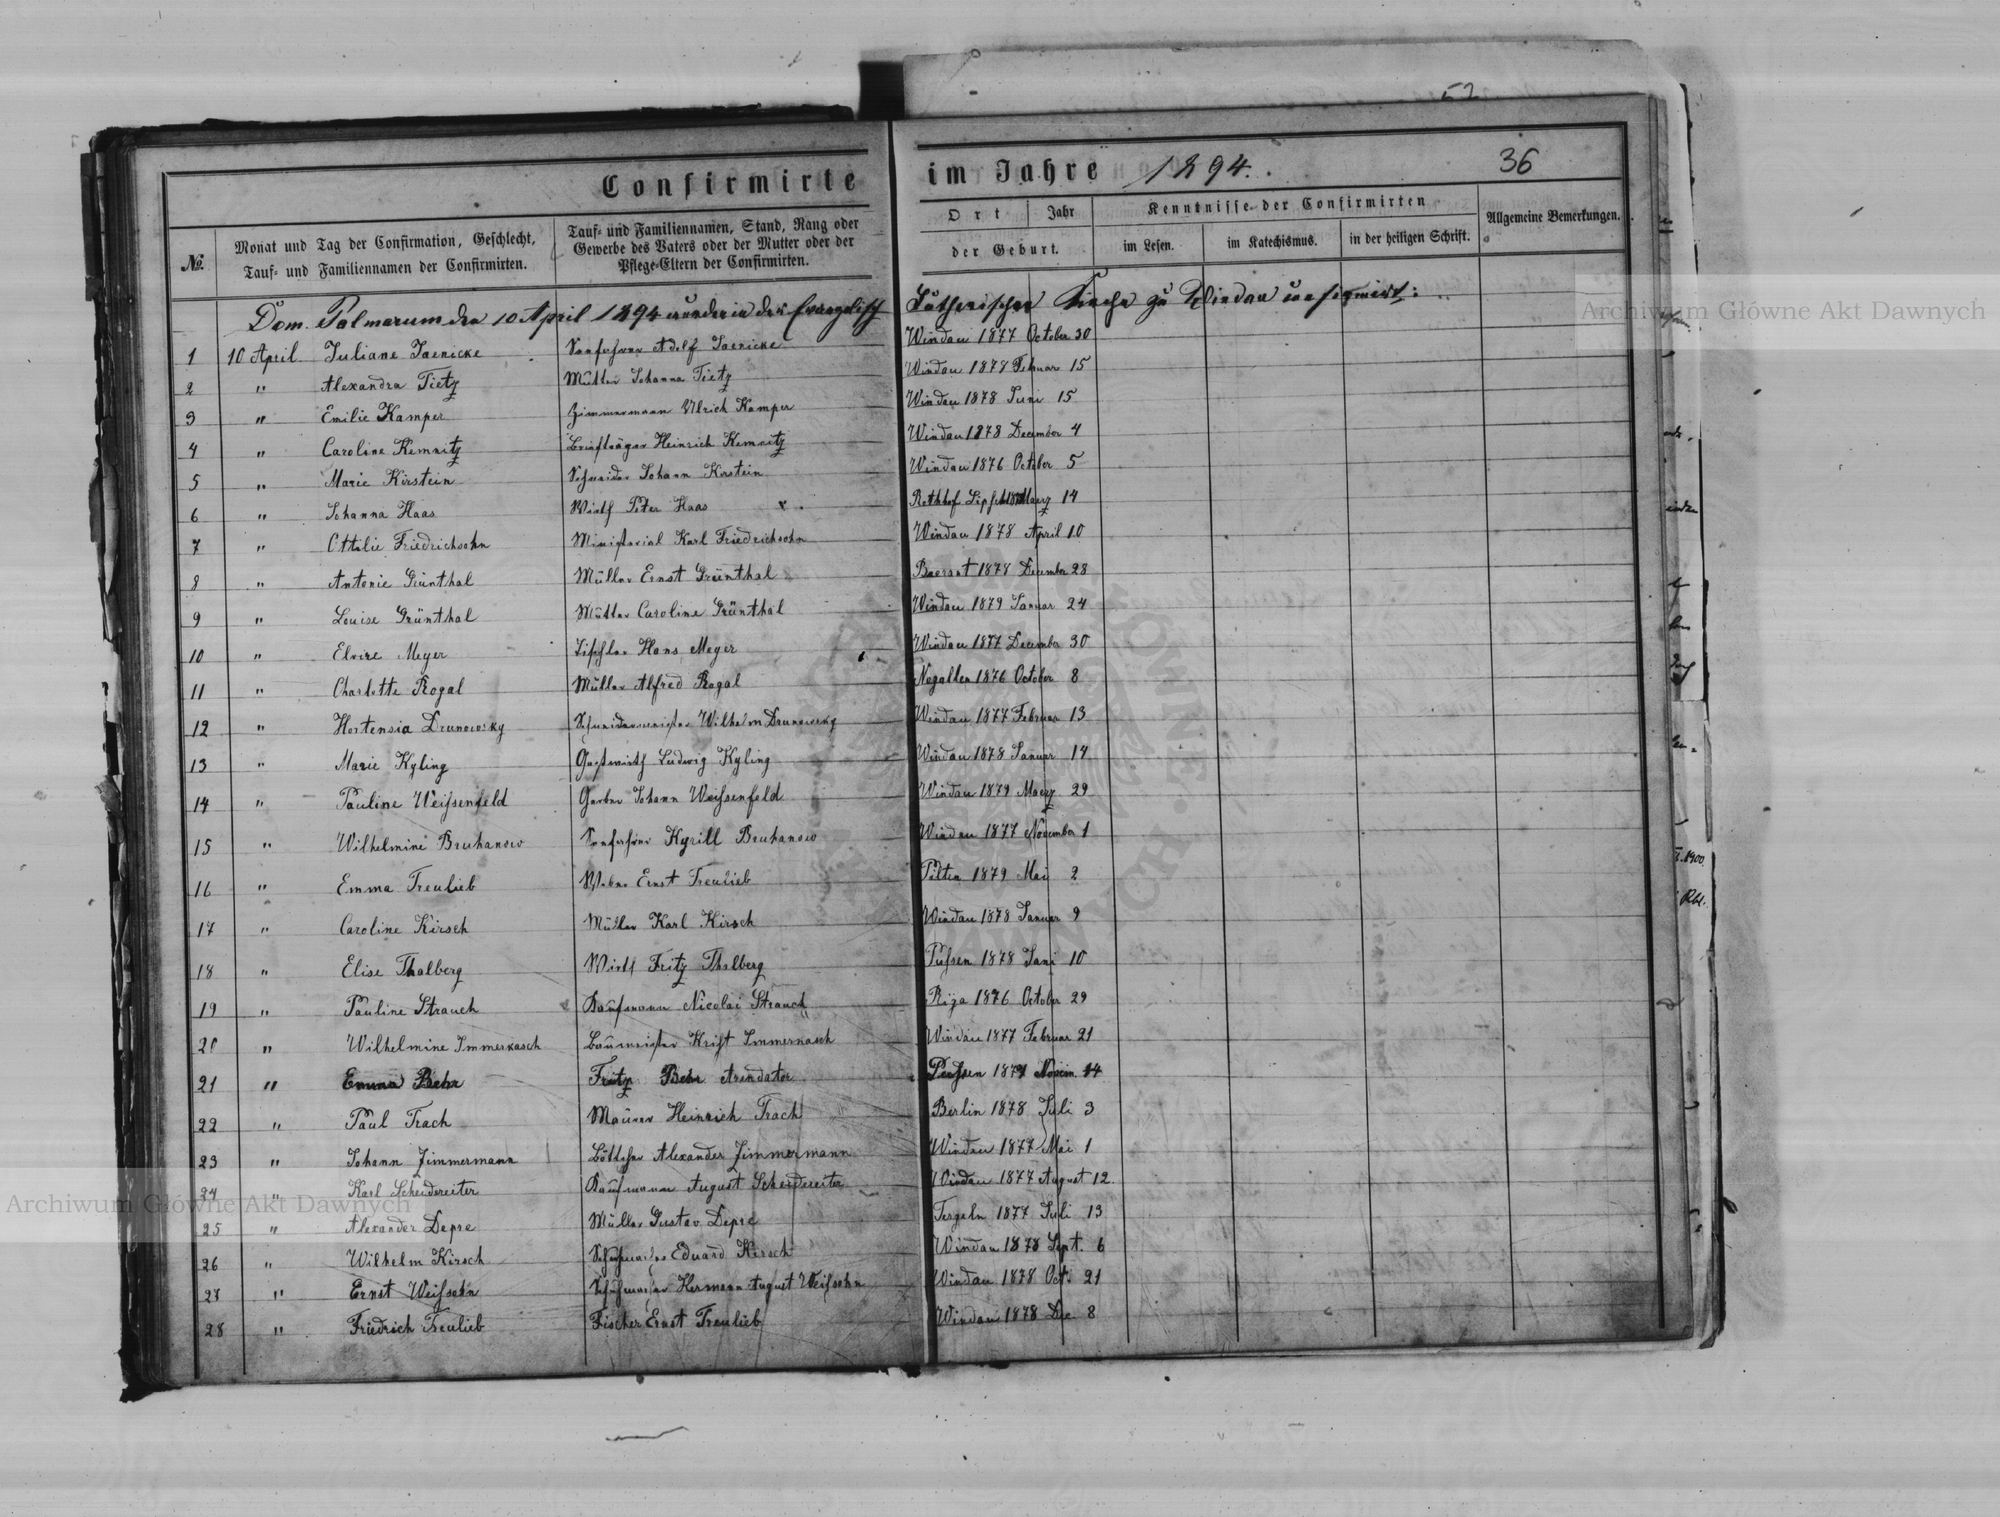 52
Confirmirte im Jahre 1894.
36
№
Monat und Tag der Confirmation, Geschlecht,
Tauf- und Familiennamen der Confirmirten.
Tauf- und Familiennamen, Stand, Rang oder
Gewerbe des Vaters oder der Mutter oder der
Pflege-Eltern der Confirmirten.
Ort Jahr
der Geburt.
Kenntnisse der Confirmirten
im Lesen. im Katechismus. in der heiligen Schrift.
Allgemeine Bemerkungen.
Dom. Palmarum den 10 April 1894 wurden in der Evangelisch Lutherischen Kirche zu Windau confirmirt:
1 10 April Juliane Jaenicke Adolf Jaenicke Windau 1877 October 30
2 " Alexandra Tietz Mutter Johanna Tietz Windau 1878 Februar 15
3 " Emilie Kamper Zimmermann Ulrich Kamper Windau 1878 Juni 15
4 " Caroline Kemnitz Briefträger Heinrich Kemnitz Windau 1878 December 4
5 " Marie Kirstein Schneider Johann Kirstein Windau 1876 October 5
6 " Johanna Haas Wirth Peter Haas Maerz 14
7 " Ottilie Friedrichsohn Ministerial Karl Friedrichsohn Windau 1878 April 10
8 " Antonie Grünthal Müller Ernst Grünthal 1878 December 28
9 " Louise Grünthal Mutter Caroline Grünthal Windau 1879 Januar 24
10 " Elvire Meyer Tischler Hans Meyer Windau 1877 December 30
11 " Charlotte Rogal Müller Alfred Rogal 1876 October 8
12 " Hortensia Drunowsky Schneidermeister Wilhelm Drunowsky Windau 1877 Februar 13
13 " Marie Kyling Gastwirth Ludwig Kyling Windau 1878 Januar 14
14 " Pauline Weissenfeld Gerber Johann Weissenfeld Windau 1879 Maerz 29
15 " Wilhelmine Bruhanow Kyrill Bruhanow Windau 1877 November 1
16 " Emma Treulieb Weber Ernst Treulieb Pilten 1879 Mai 2
17 " Caroline Kirsch Müller Karl Kirsch Windau 1878 Januar 9
18 " Elise Thalberg Wirth Fritz Thalberg Pussen 1878 Juni 10
19 " Pauline Strauch Kaufmann Nicolai Strauch Riga 1876 October 29
20 " Wilhelmine Immernasch Baumeister Krist Immernasch Windau 1877 Februar 21
21 " Emma Behr Fritz Behr Arendator Pussen Novem. 14
22 " Paul Trach Maurer Heinrich Trach Berlin 1878 Juli 3
23 " Johann Zimmermann Böttcher Alexander Zimmermann Windau 1877 Mai 1
24 " Karl Scheidereiter Kaufmann August Scheidereiter Windau 1877 August 12.
25 " Alexander Depre Müller Gustav Depre Tergeln 1877 Juli 13
26 " Wilhelm Kirsch Schuhmacher Eduard Kirsch Windau 1878 Sept. 6
27 " Ernst Weissohn Schuhmacher Hermann August Weissohn Windau 1878 Oct. 21
28 " Friedrich Treulieb Fischer Ernst Treulieb Windau 1878 Dec 8
Archiwum Główne Akt Dawnych
Archiwum Główne Akt Dawnych